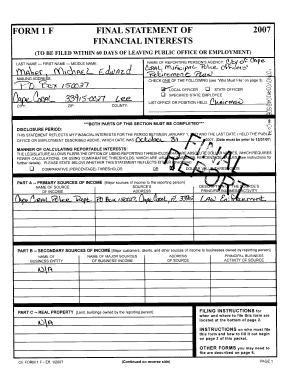 FORM 1 F
FINAL STATEMENT OF
FINANCIAL INTERESTS
2007
(TO BE FILED WITHIN 60 DAYS OF LEAVING PUBLIC OFFICE OR EMPLOYMENT)
LAST NAME — FIRST NAME — MIDDLE NAME:
Maher, Michael Edward
MAILING ADDRESS:
PO Box 150027
Cape Coral 33915-0027 Lee
CITY: ZIP: COUNTY:
NAME OF REPORTING PERSON'S AGENCY: City of Cape
Coral Municipal Police Officers'
Retirement Plan
CHECK ONE OF THE FOLLOWING (see "Who Must File" on page 3):
LOCAL OFFICER STATE OFFICER
SPECIFIED STATE EMPLOYEE
LIST OFFICE OR POSITION HELD: Chairman
**BOTH PARTS OF THIS SECTION MUST BE COMPLETED**
DISCLOSURE PERIOD:
THIS STATEMENT REFLECTS MY FINANCIAL INTERESTS FOR THE PERIOD BETWEEN JANUARY 1, AND THE LAST DATE I HELD THE PUBLIC
OFFICE OR EMPLOYMENT DESCRIBED ABOVE, WHICH DATE WAS October 31, 2007. (Date must be prior to 12/31/07)
FINAL
REPORT
MANNER OF CALCULATING REPORTABLE INTERESTS:
THE LEGISLATURE ALLOWS FILERS THE OPTION OF USING REPORTING THRESHOLDS WHICH REQUIRES
COMPARATIVE (PERCENTAGE) THRESHOLDS OR
PART A — PRIMARY SOURCES OF INCOME [Major sources of income to the reporting person]
NAME OF SOURCE
OF INCOME
SOURCE'S
ADDRESS
DESCRIPTION OF THE SOURCE'S
PRINCIPAL BUSINESS ACTIVITY
Cape Coral Police Dept. PO Box 150027, Cape Coral, FL 33915 Law Enforcement
PART B — SECONDARY SOURCES OF INCOME [Major customers, clients, and other sources of income to businesses owned by reporting person]
NAME OF
BUSINESS ENTITY
NAME OF MAJOR SOURCES
OF BUSINESS' INCOME
ADDRESS
OF SOURCE
PRINCIPAL BUSINESS
ACTIVITY OF SOURCE
N/A
PART C — REAL PROPERTY [Land, buildings owned by the reporting person]
N/A
FILING INSTRUCTIONS for
when and where to file this form are
located at the bottom of page 2.
INSTRUCTIONS on who must file
this form and how to fill it out begin
on page 3 of this packet.
OTHER FORMS you may need to
file are described on page 6.
CE FORM 1 F - Eff. 1/2007
(Continued on reverse side)
PAGE 1